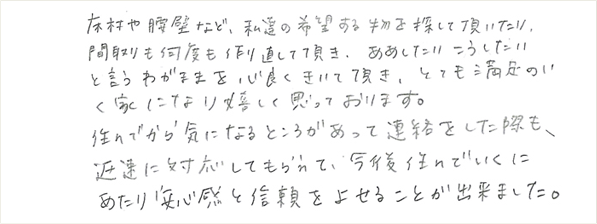 床材や腰壁など、私達の希望する物を探して頂いたり、
間取りも何度も作り直して頂き、ああしたいこうしたい
と言うわがままを心良くきいて頂き、とても満足のい
く家になり嬉しく思っております。
住んでから気になるところがあって連絡をした際も、
迅速に対応してもらえて、今後住んでいくに
あたり安心感と信頼をよせることが出来ました。